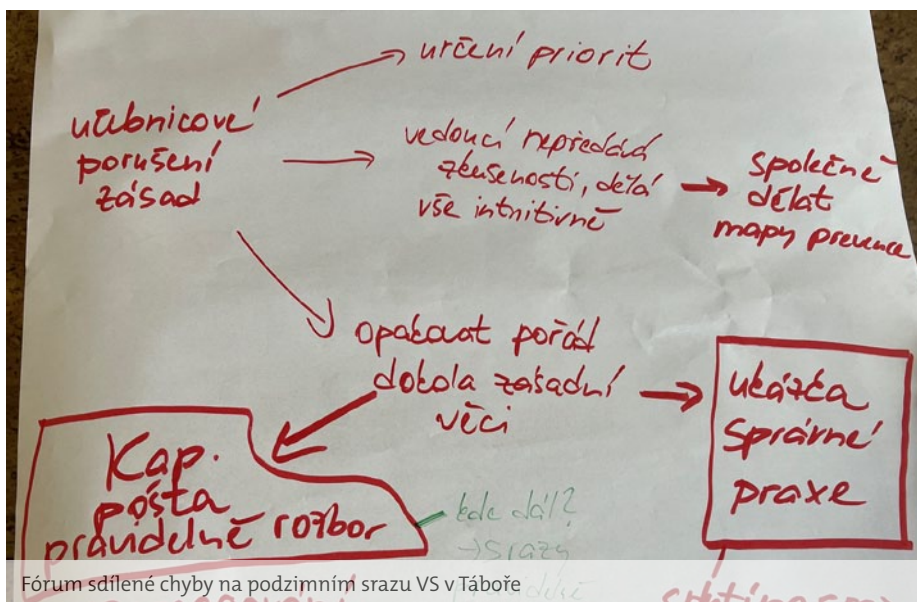 určení priorit
učebnicové
porušení
zásad
vedoucí nepředává
zkušenosti, dělá
vše intuitivně
společně
dělat
mapy prevence
opakovat pořád
dokola zásadní
věci
ukázka
správné
praxe
Kap.
pošta
pravidelně rozbor
kde dál?
→ srazy
pravidelně
Fórum sdílené chyby na podzimním srazu VS v Táboře